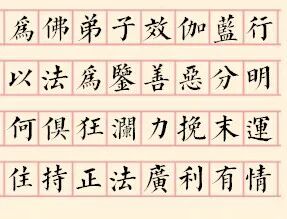 為佛弟子效伽藍行
以法為鑒善惡分明
何俱狂瀾力挽末運
住持正法廣利有情